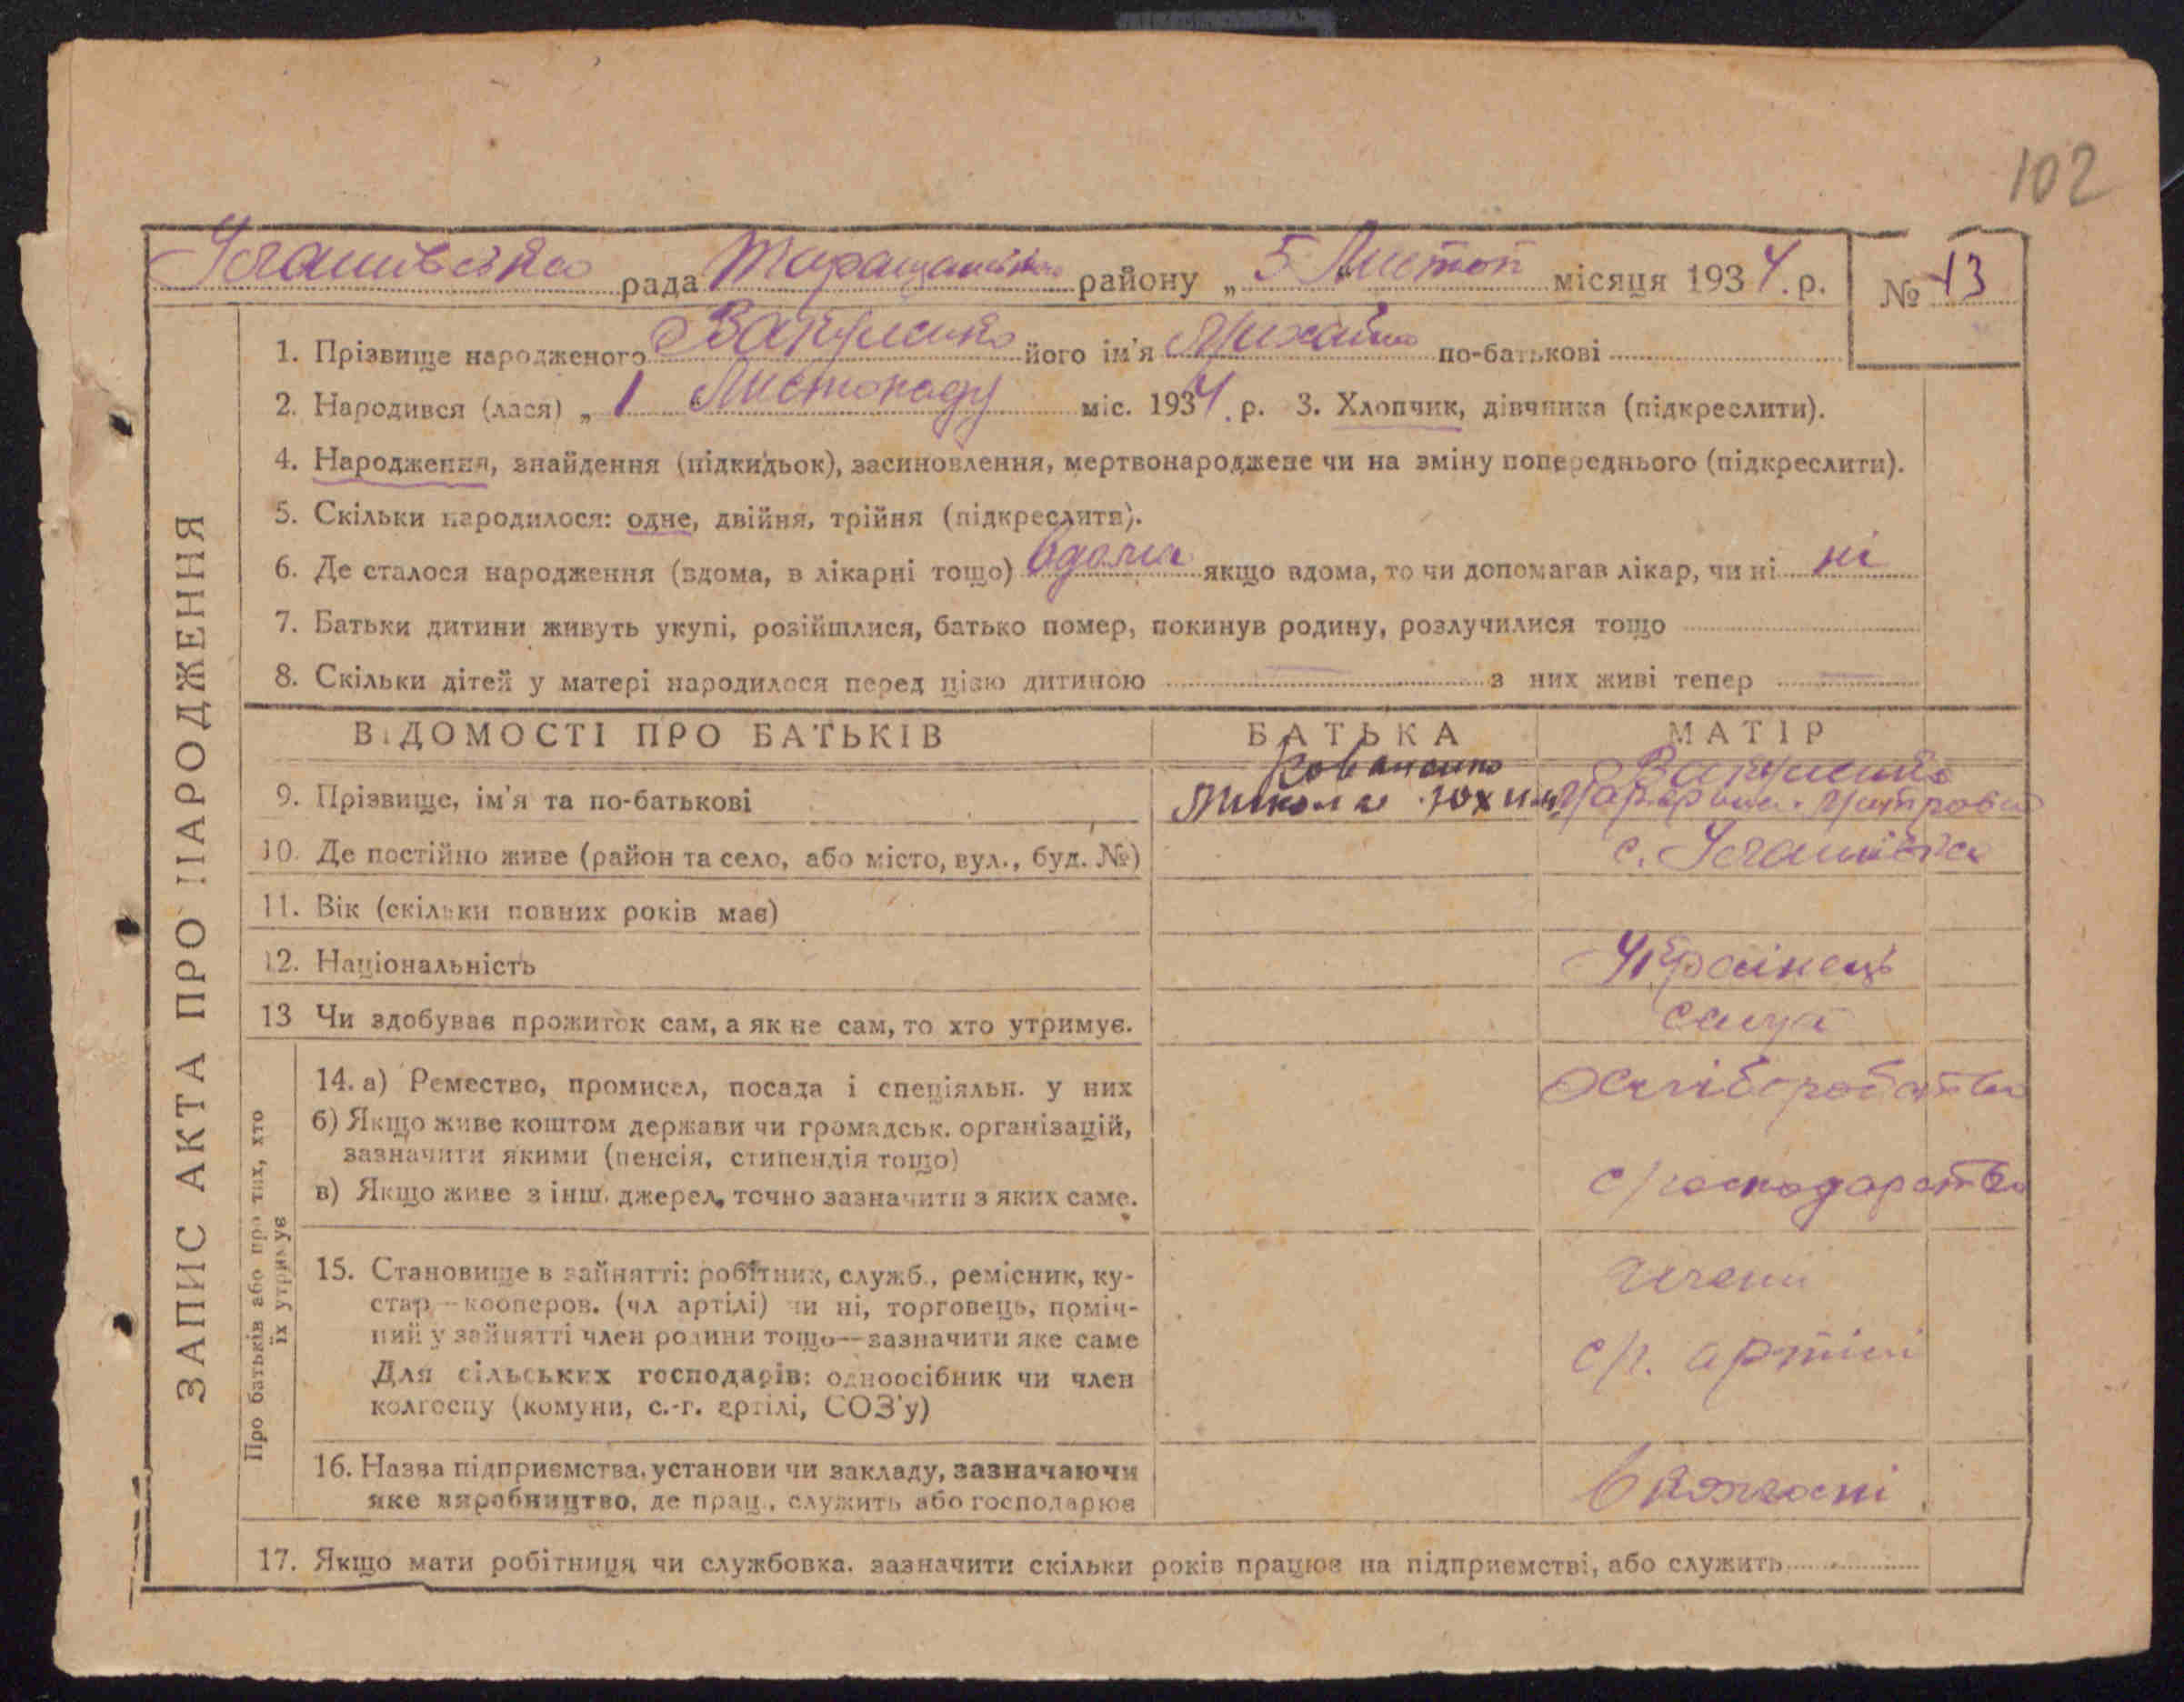 102
рада Таращанського району „ 5 Листоп місяця 1934 р. № 13
1. Прізвище народженого Вакуленко його ім'я Михайло по-батькові
2. Народився (лася) „ 1 Листопаду міс. 1934 р. 3. Хлопчик, дівчинка (підкреслити).
4. Народження, знайдення (підкидьок), засиновлення, мертвонароджене чи на зміну попереднього (підкреслити).
5. Скільки народилося: одне, двійня, трійня (підкреслити).
6. Де сталося народження (вдома, в лікарні тощо) вдома якщо вдома, то чи допомагав лікар, чи ні ні
7. Батьки дитини живуть укупі, розійшлися, батько помер, покинув родину, розлучилися тощо
8. Скільки дітей у матері народилося перед цією дитиною з них живі тепер
ЗАПИС АКТА ПРО НАРОДЖЕННЯ
ВІДОМОСТІ ПРО БАТЬКІВ БАТЬКА МАТІР
Коваленко Вакуленко
9. Прізвище, ім'я та по-батькові Микола Юхим
10. Де постійно живе (район та село, або місто, вул., буд. №) с.
11. Вік (скільки повних років має)
12. Національність Українець
13 Чи здобуває прожиток сам, а як не сам, то хто утримує. сама
Про батьків або про тих, хто
їх утримує
14. а) Ремество, промисел, посада і спеціяльн. у них хліборобство
б) Якщо живе коштом держави чи громадськ. організацій,
зазначити якими (пенсія, стипендія тощо)
в) Якщо живе з інш. джерел, точно зазначити з яких саме. с/господарство
15. Становище в зайнятті: робітник, служб., ремісник, ку- член
стар,—кооперов. (чл артілі) чи ні, торговець, поміч-
ний у зайнятті член родини тощо—зазначити яке саме с/г. артілі
Для сільських господарів: одноосібник чи член
колгоспу (комуни, с.-г. артілі, СОЗ'у)
16. Назва підприємства, установи чи закладу, зазначаючи в колгоспі
яке виробництво, де прац., служить або господарює
17. Якщо мати робітниця чи службовка, зазначити скільки років працює на підприємстві, або служить